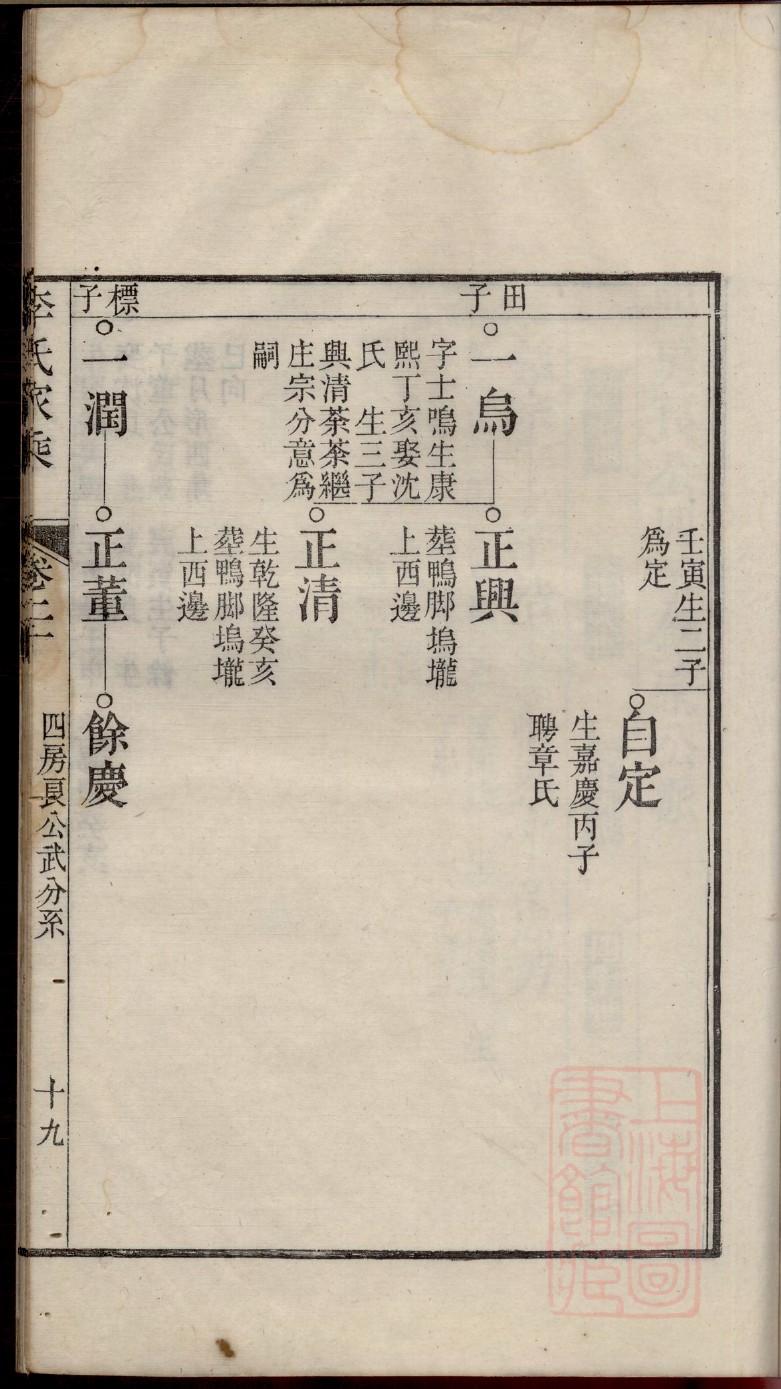 壬寅生二子
爲定
自定
生嘉慶丙子
聘章氏
田子
一烏
字士鳴生康
熙丁亥娶沈
氏 生三子
興清茶茶繼
庄宗分意爲
嗣
正興
葬鴨脚塢壠
上西邊
正清
生乾隆癸亥
葬鴨脚塢壠
上西邊
標子
一潤
正董
餘慶
李氏家乘
卷二十
四房良公武分系
十九
上海圖書館藏